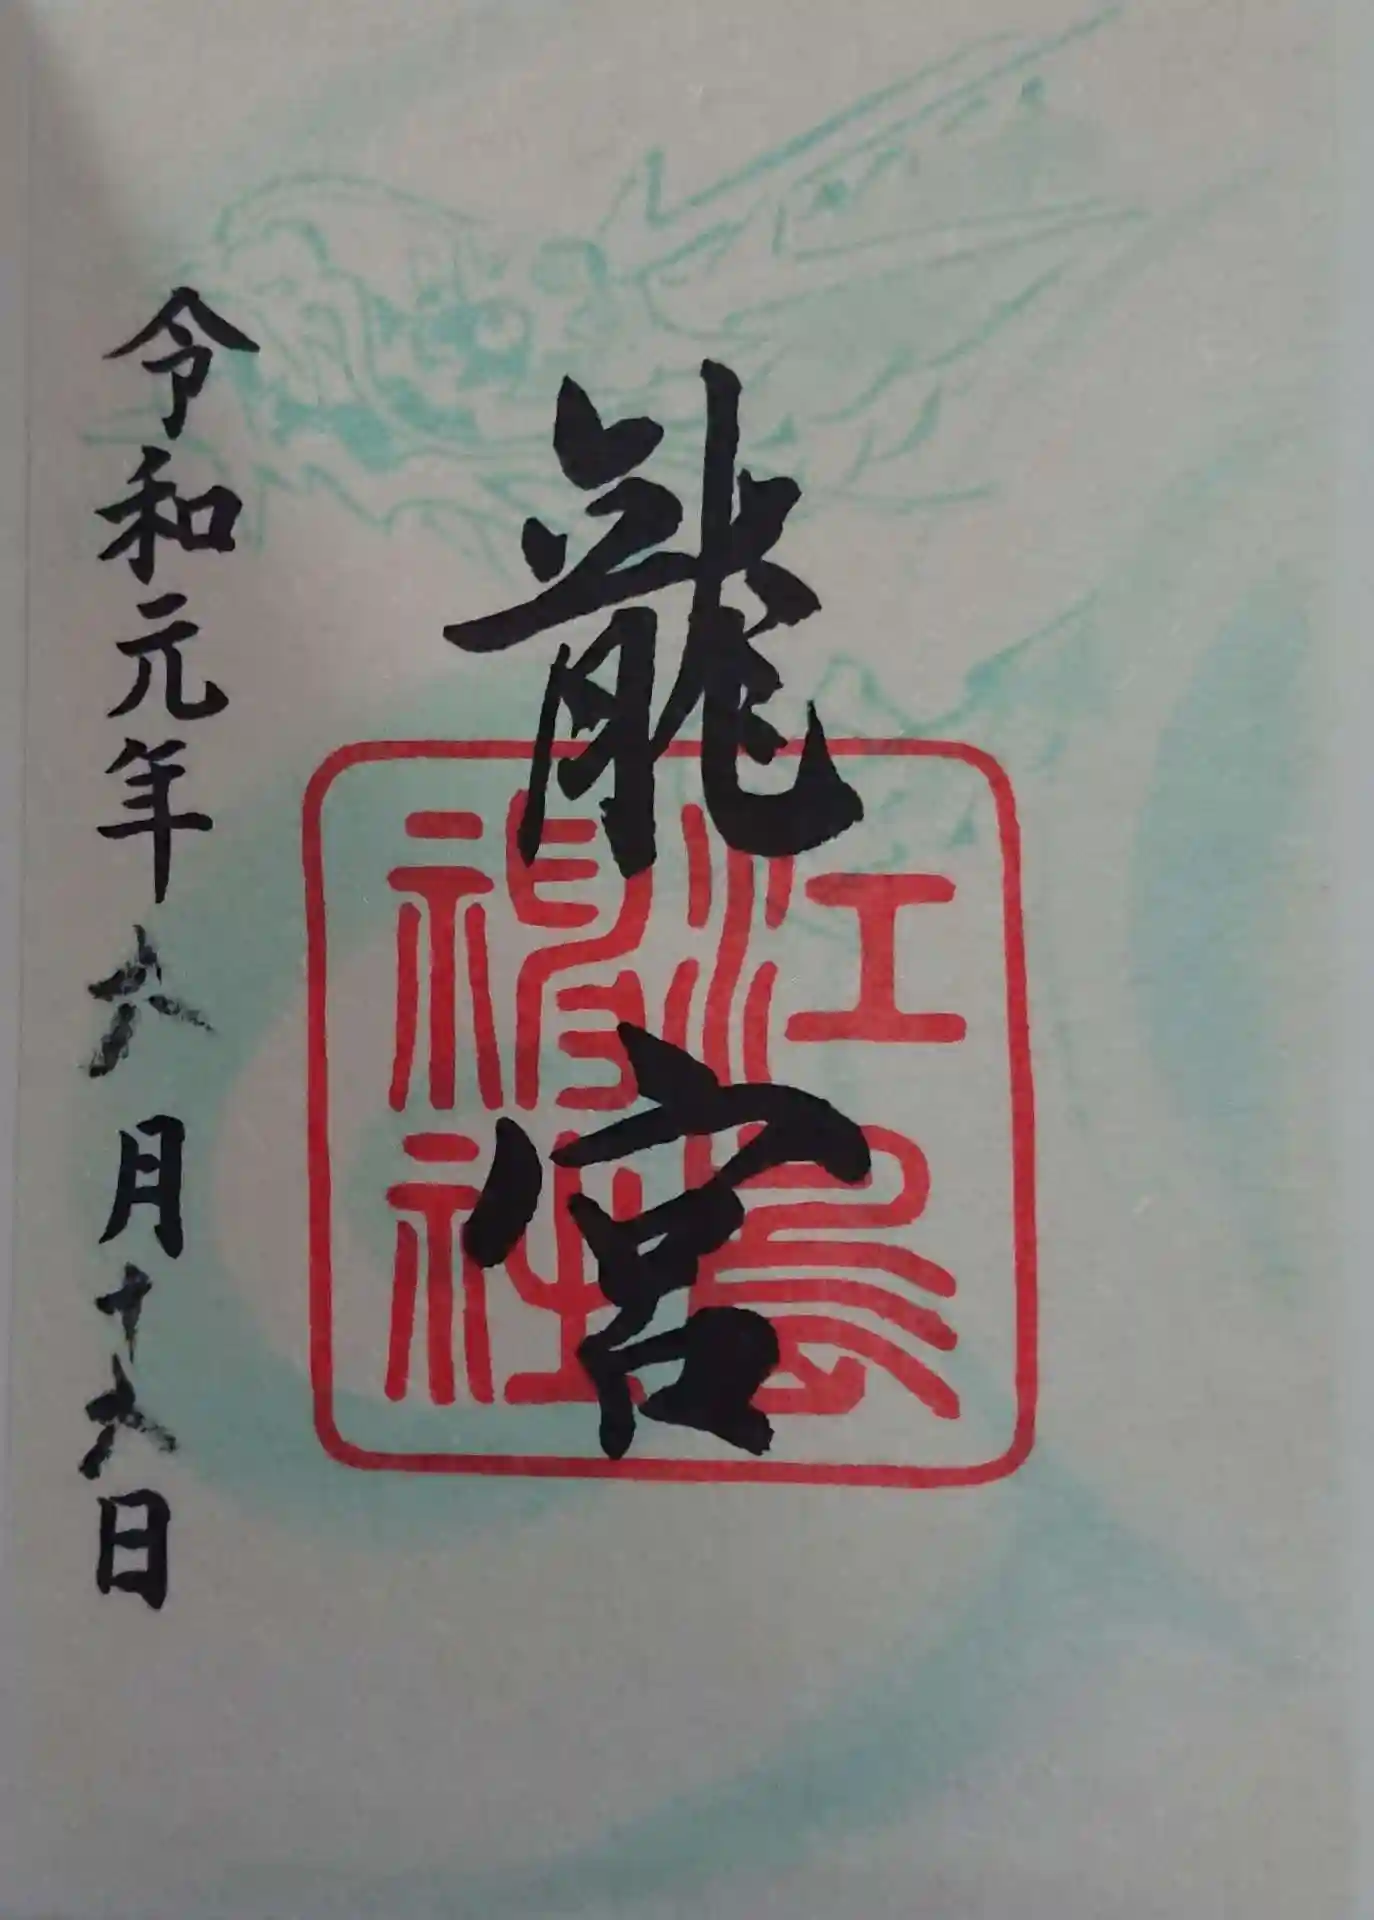 龍宮
江島神社
令和元年六月十六日